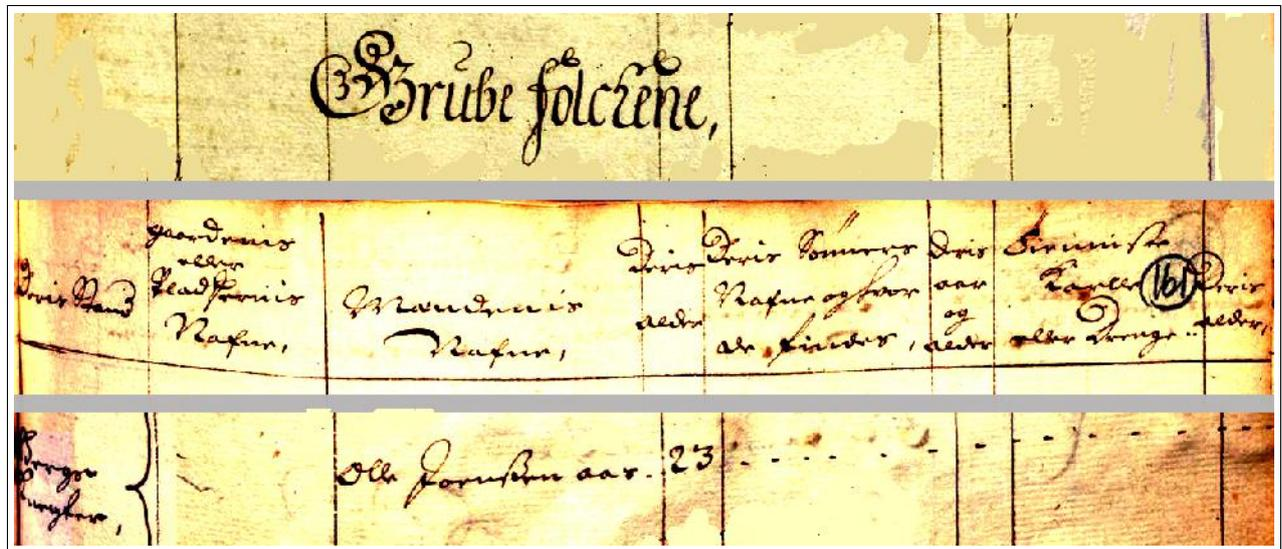 Grube folchene,
Deris Stand
gaardenis
eller
Pladsernis
Nafne,
Mandenis
Nafne,
Deris
alder
Deris Sønners
Nafne og hvor
de findes,
Deris
aar
og
alder
Tienniste
Karlle
eller Drenge
161
Deris
alder,
Olle Joenssen aar. 23